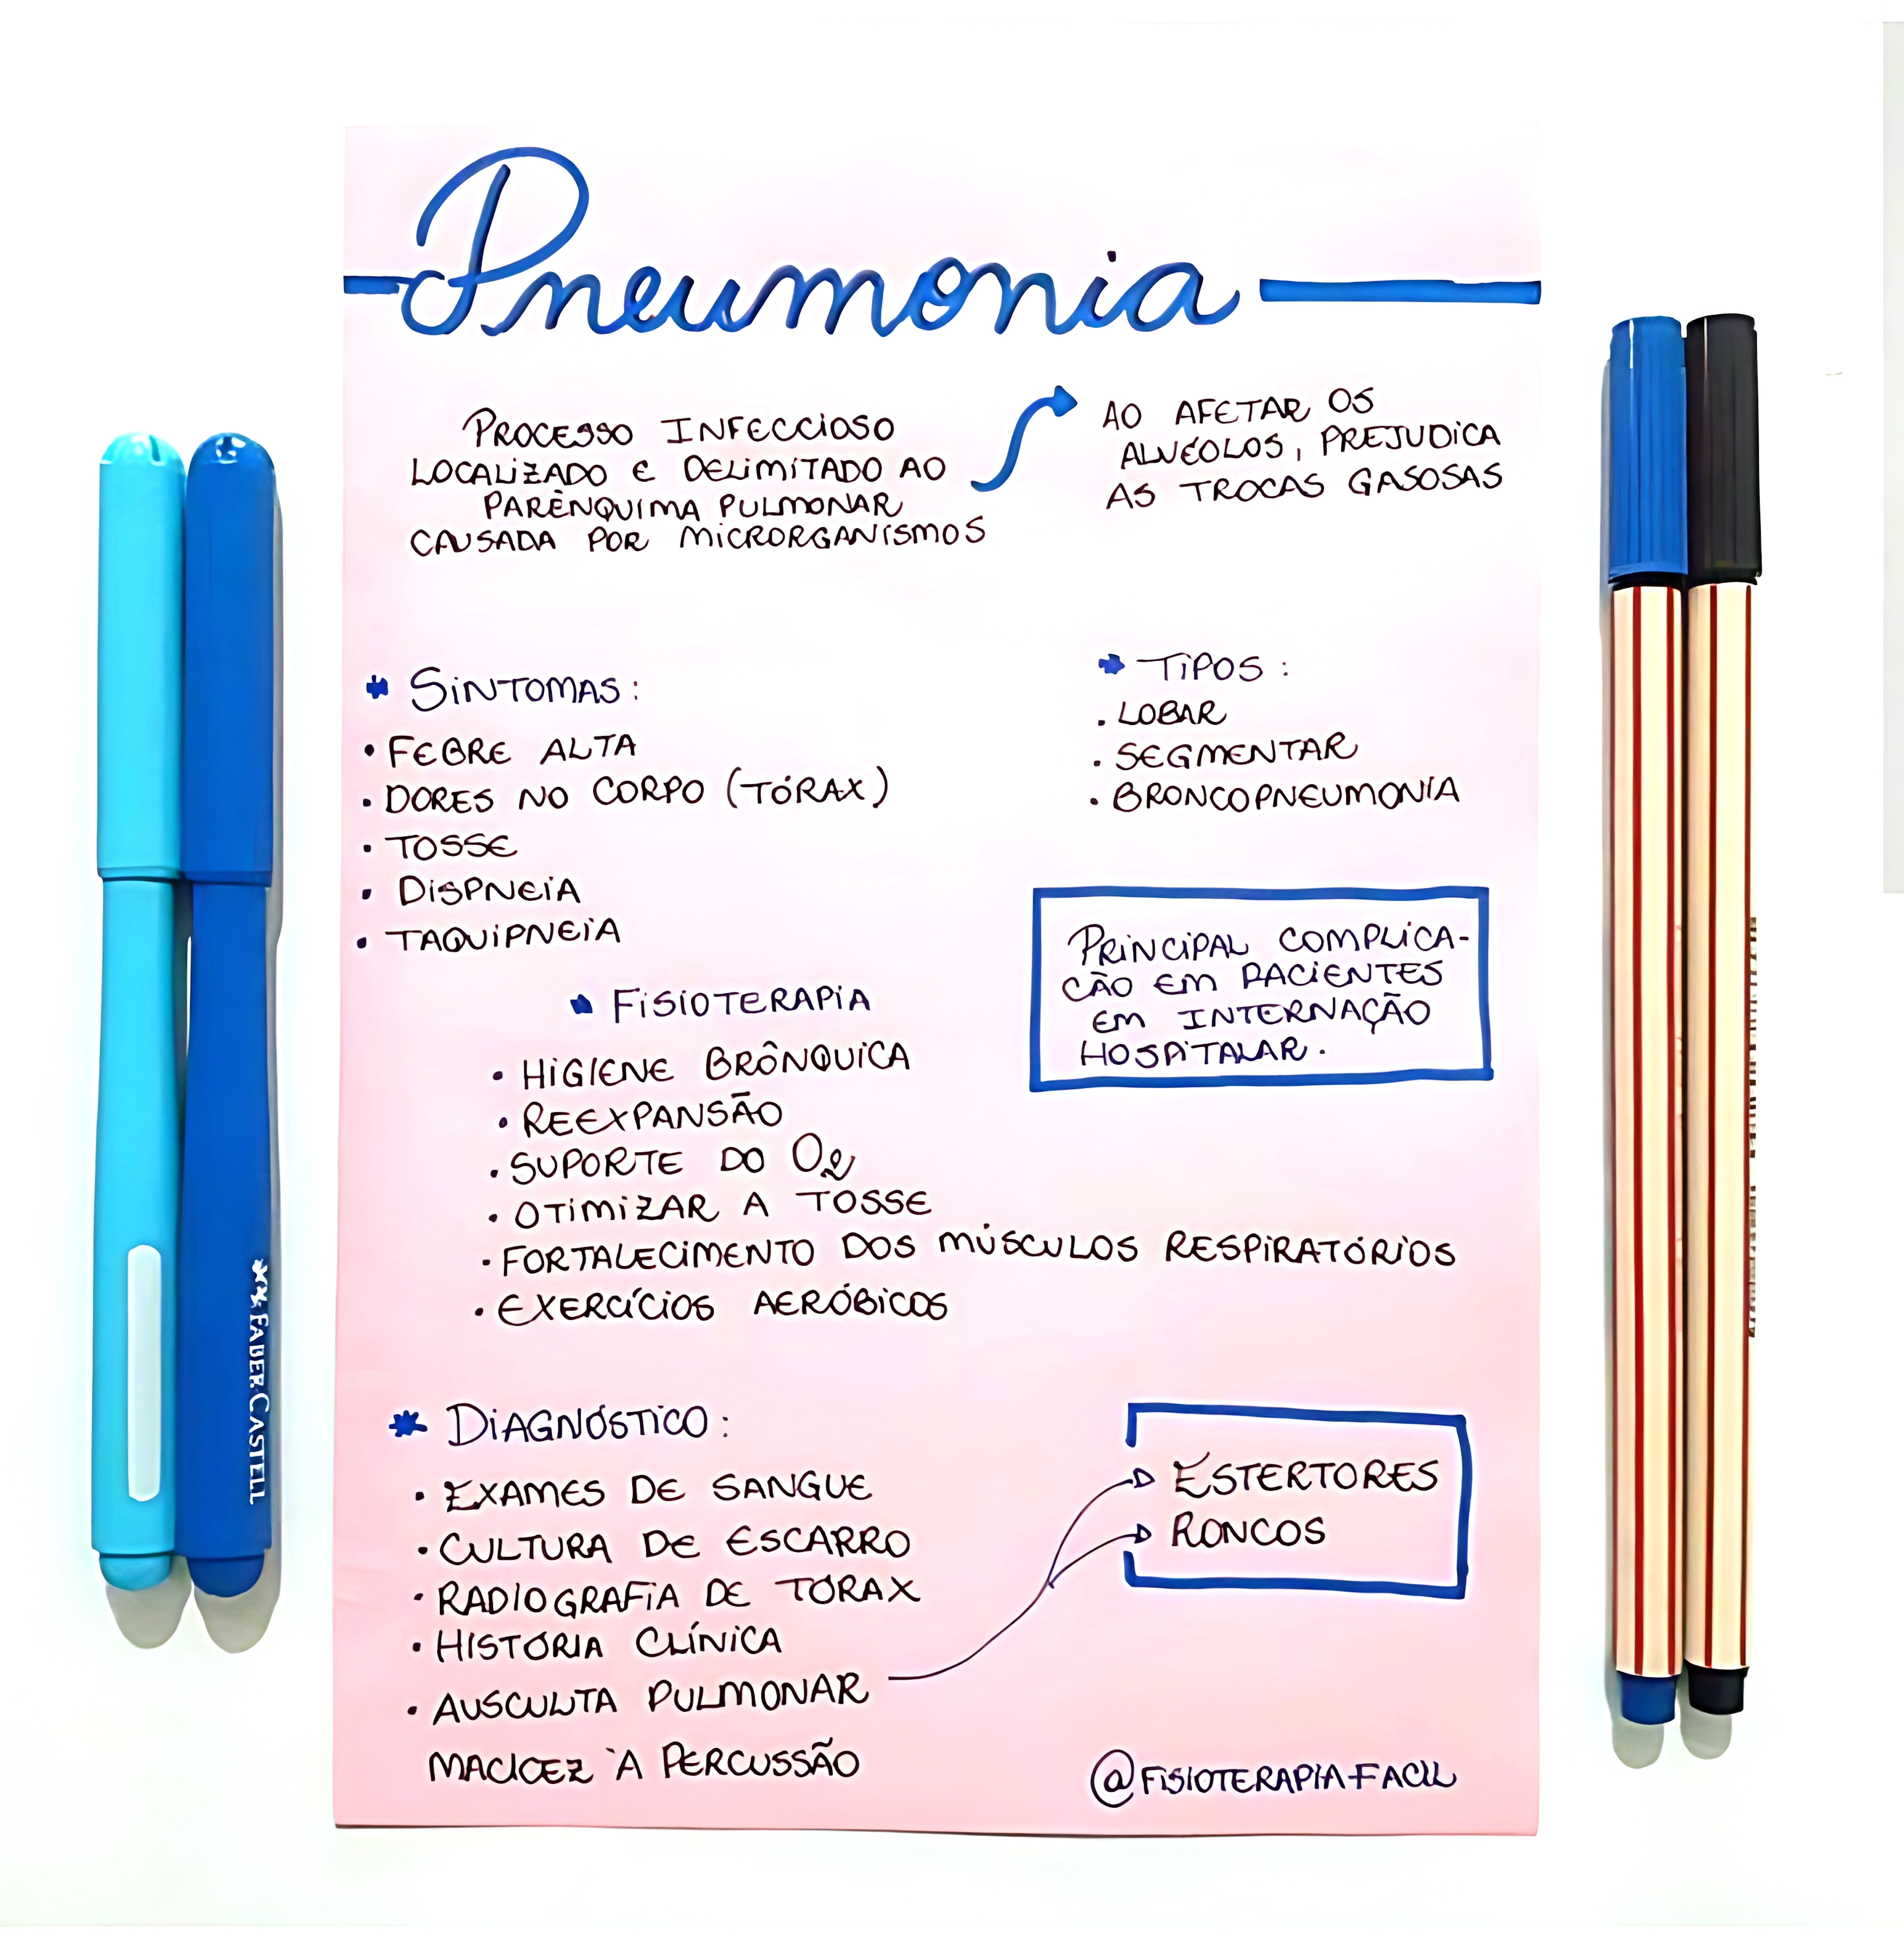 Pneumonia
PROCESSO INFECCIOSO
LOCALIZADO E DELIMITADO AO
PARÊNQUIMA PULMONAR
CAUSADA POR MICRORGANISMOS
AO AFETAR OS
ALVÉOLOS, PREJUDICA
AS TROCAS GASOSAS
SINTOMAS:
• FEBRE ALTA
• DORES NO CORPO (TÓRAX)
• TOSSE
• DISPNEIA
• TAQUIPNEIA
TIPOS:
• LOBAR
• SEGMENTAR
• BRONCOPNEUMONIA
PRINCIPAL COMPLICA-
CÃO EM PACIENTES
EM INTERNAÇÃO
HOSPITALAR.
FISIOTERAPIA
• HIGIENE BRÔNQUICA
• REEXPANSÃO
• SUPORTE DO O2
• OTIMIZAR A TOSSE
• FORTALECIMENTO DOS MÚSCULOS RESPIRATÓRIOS
• EXERCÍCIOS AERÓBICOS
* DIAGNÓSTICO:
• EXAMES DE SANGUE
• CULTURA DE ESCARRO
• RADIOGRAFIA DE TÓRAX
• HISTÓRIA CLÍNICA
• AUSCULTA PULMONAR
MACICEZ À PERCUSSÃO
ESTERTORES
RONCOS
@FISIOTERAPIAFACIL
FABER-CASTELL